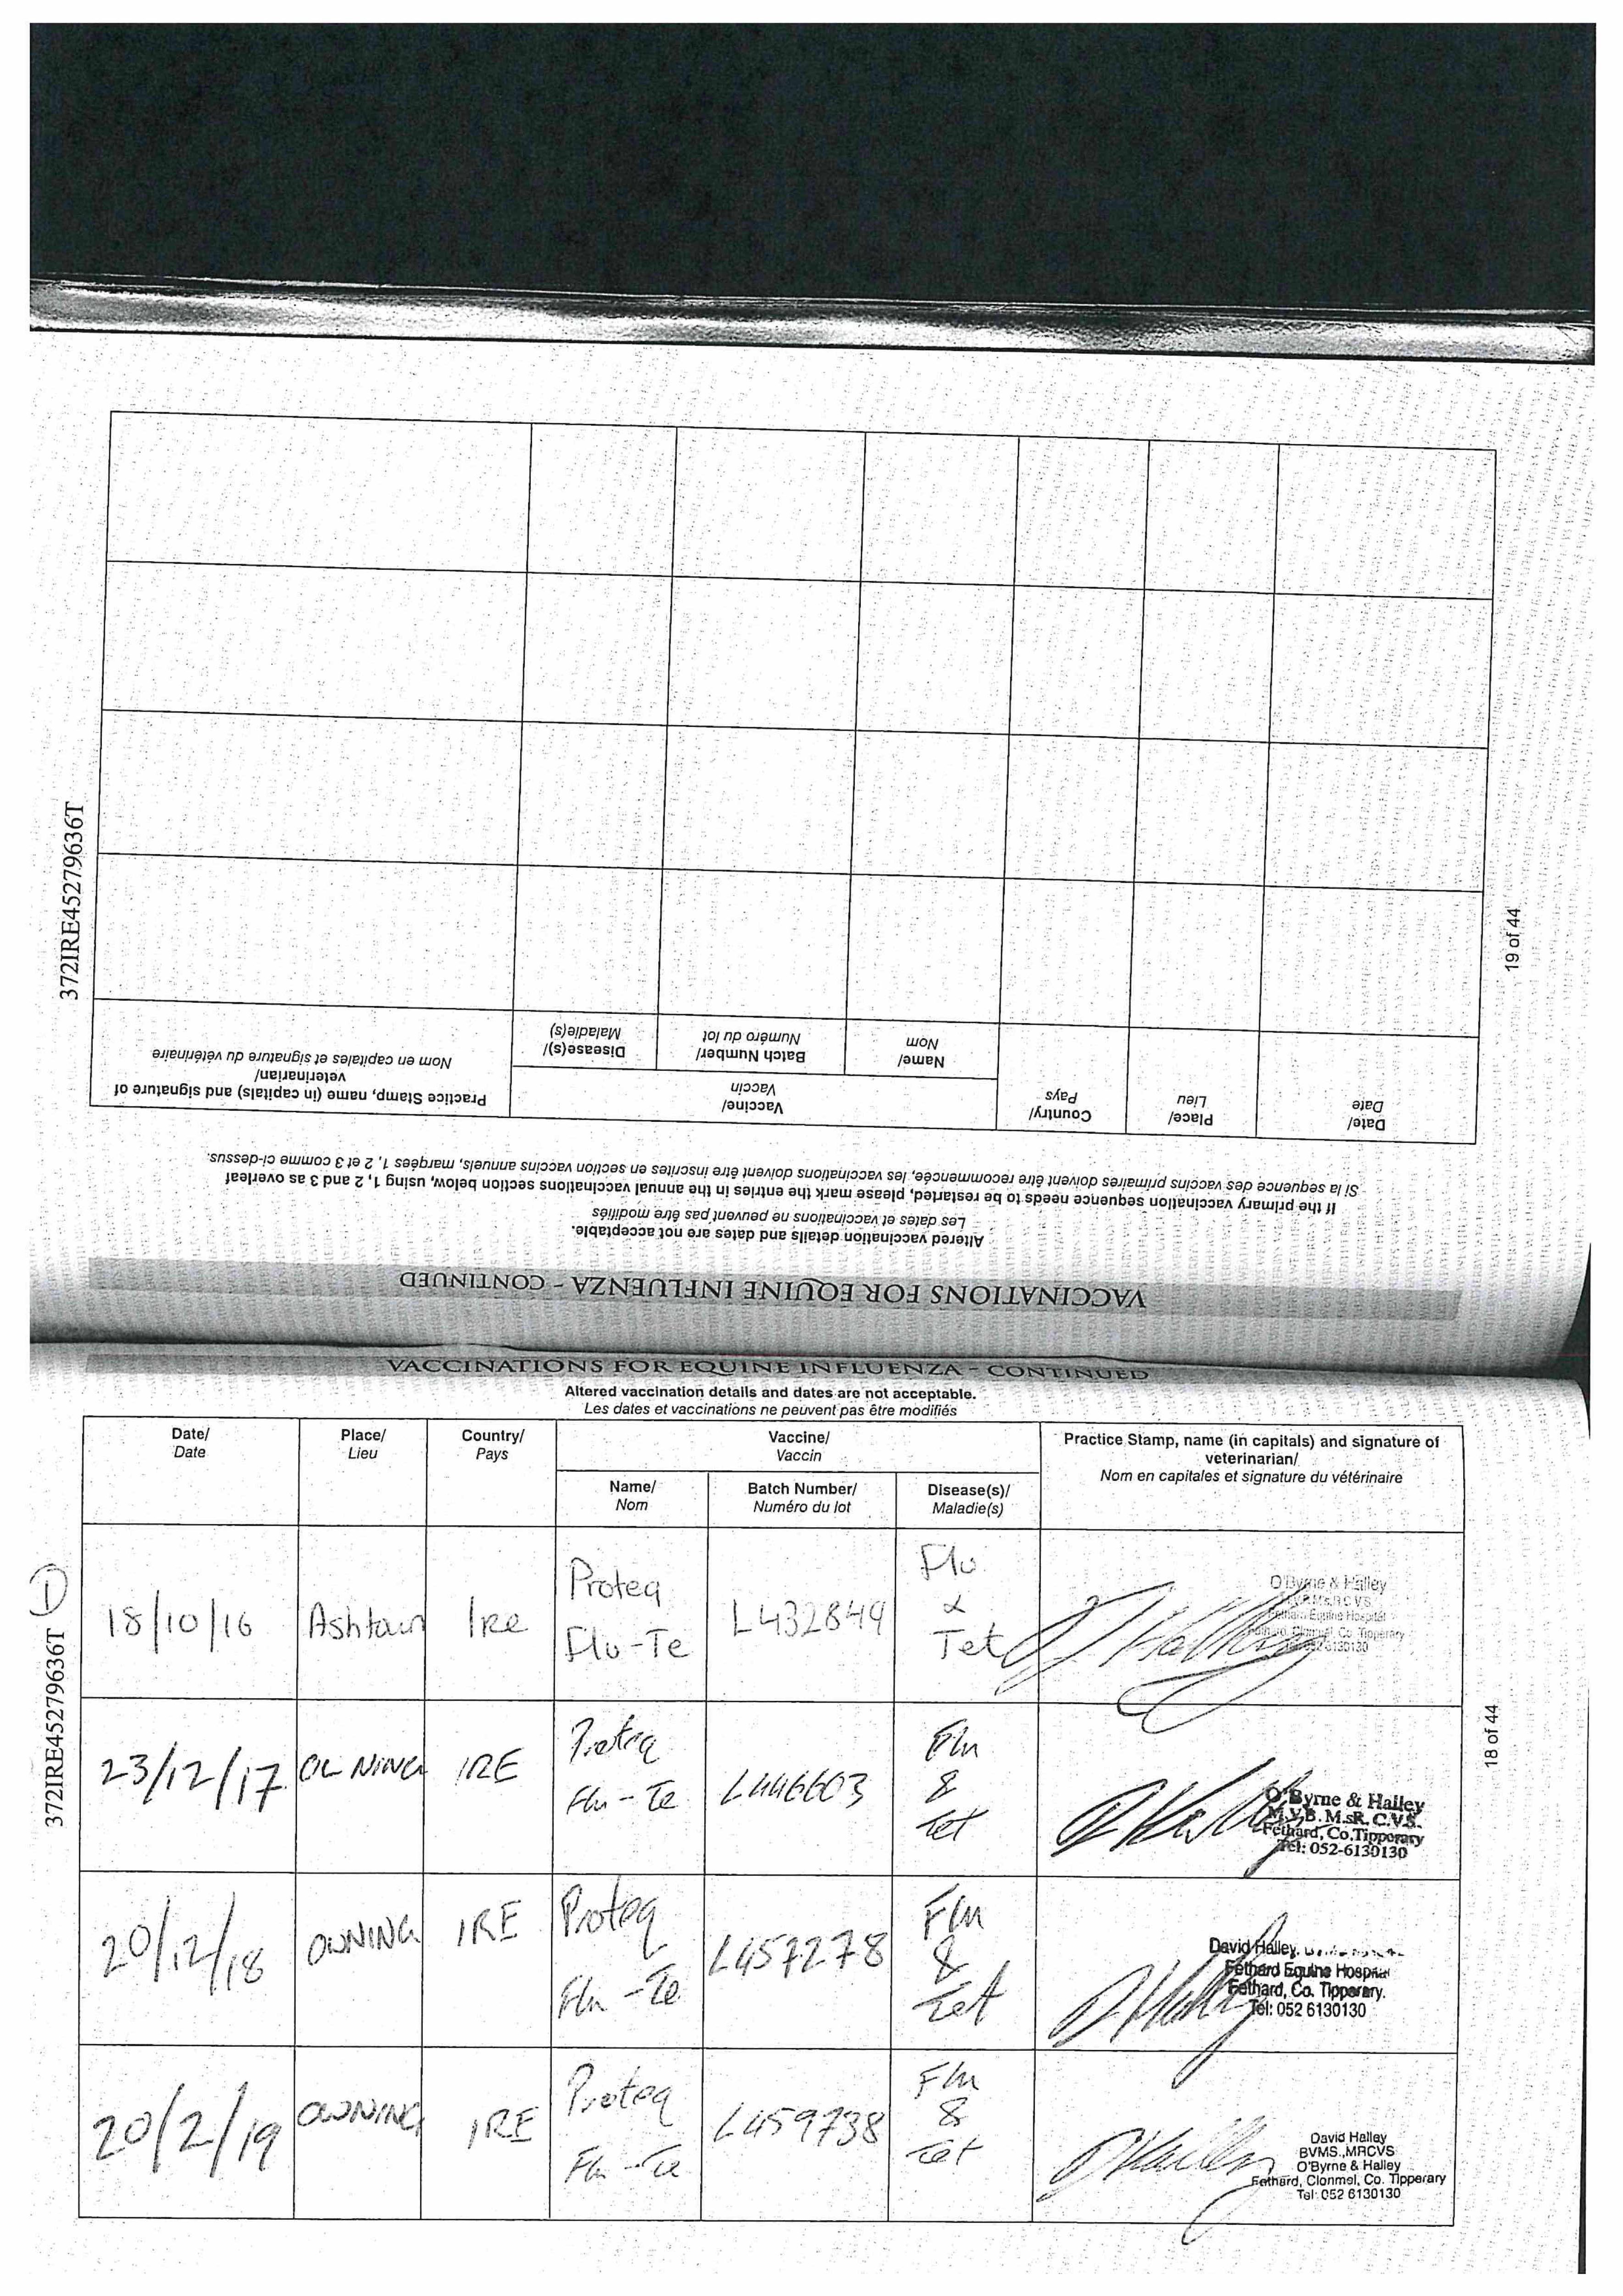 372IRE45279636T
19 of 44
VACCINATIONS FOR EQUINE INFLUENZA - CONTINUED
Altered vaccination details and dates are not acceptable.
Les dates et vaccinations ne peuvent pas être modifiés
If the primary vaccination sequence needs to be restarted, please mark the entries in the annual vaccinations section below, using 1, 2 and 3 as overleaf
Si la sequence des vaccins primaires doivent être recommencée, les vaccinations doivent être inscrites en section vaccins annuels, marqées 1, 2 et 3 comme ci-dessus.
Date/ Date
Place/ Lieu
Country/ Pays
Vaccine/ Vaccin
Name/ Nom
Batch Number/ Numéro du lot
Disease(s)/ Maladie(s)
Practice Stamp, name (in capitals) and signature of
veterinarian/
Nom en capitales et signature du vétérinaire
VACCINATIONS FOR EQUINE INFLUENZA - CONTINUED
Altered vaccination details and dates are not acceptable.
Les dates et vaccinations ne peuvent pas être modifiés
372IRE45279636T
18 of 44
Date/ Date
Place/ Lieu
Country/ Pays
Vaccine/ Vaccin
Name/ Nom
Batch Number/ Numéro du lot
Disease(s)/ Maladie(s)
Practice Stamp, name (in capitals) and signature of
veterinarian/
Nom en capitales et signature du vétérinaire
18/10/16 Ashtown Ire Proteq Flu-Te L432849 Flu & Tet
O'Byrne & Halley
Fethard Equine Hospital
Fethard, Clonmel, Co. Tipperary
23/12/17 OWNING IRE Proteq Flu-Te L446603 Flu & Tet
O'Byrne & Halley
M.V.B. M.sR.C.V.S.
Fethard, Co.Tipperary
Tel: 052-6130130
20/12/18 OWNING IRE Proteq Flu-Te L457278 Flu & Tet
David Halley.
Fethard Equine Hospital
Fethard, Co. Tipperary.
Tel: 052 6130130
20/2/19 OWNING IRE Proteq Flu-Te L459738 Flu & Tet
David Halley
BVMS.,MRCVS
O'Byrne & Halley
Fethard, Clonmel, Co. Tipperary
Tel: 052 6130130